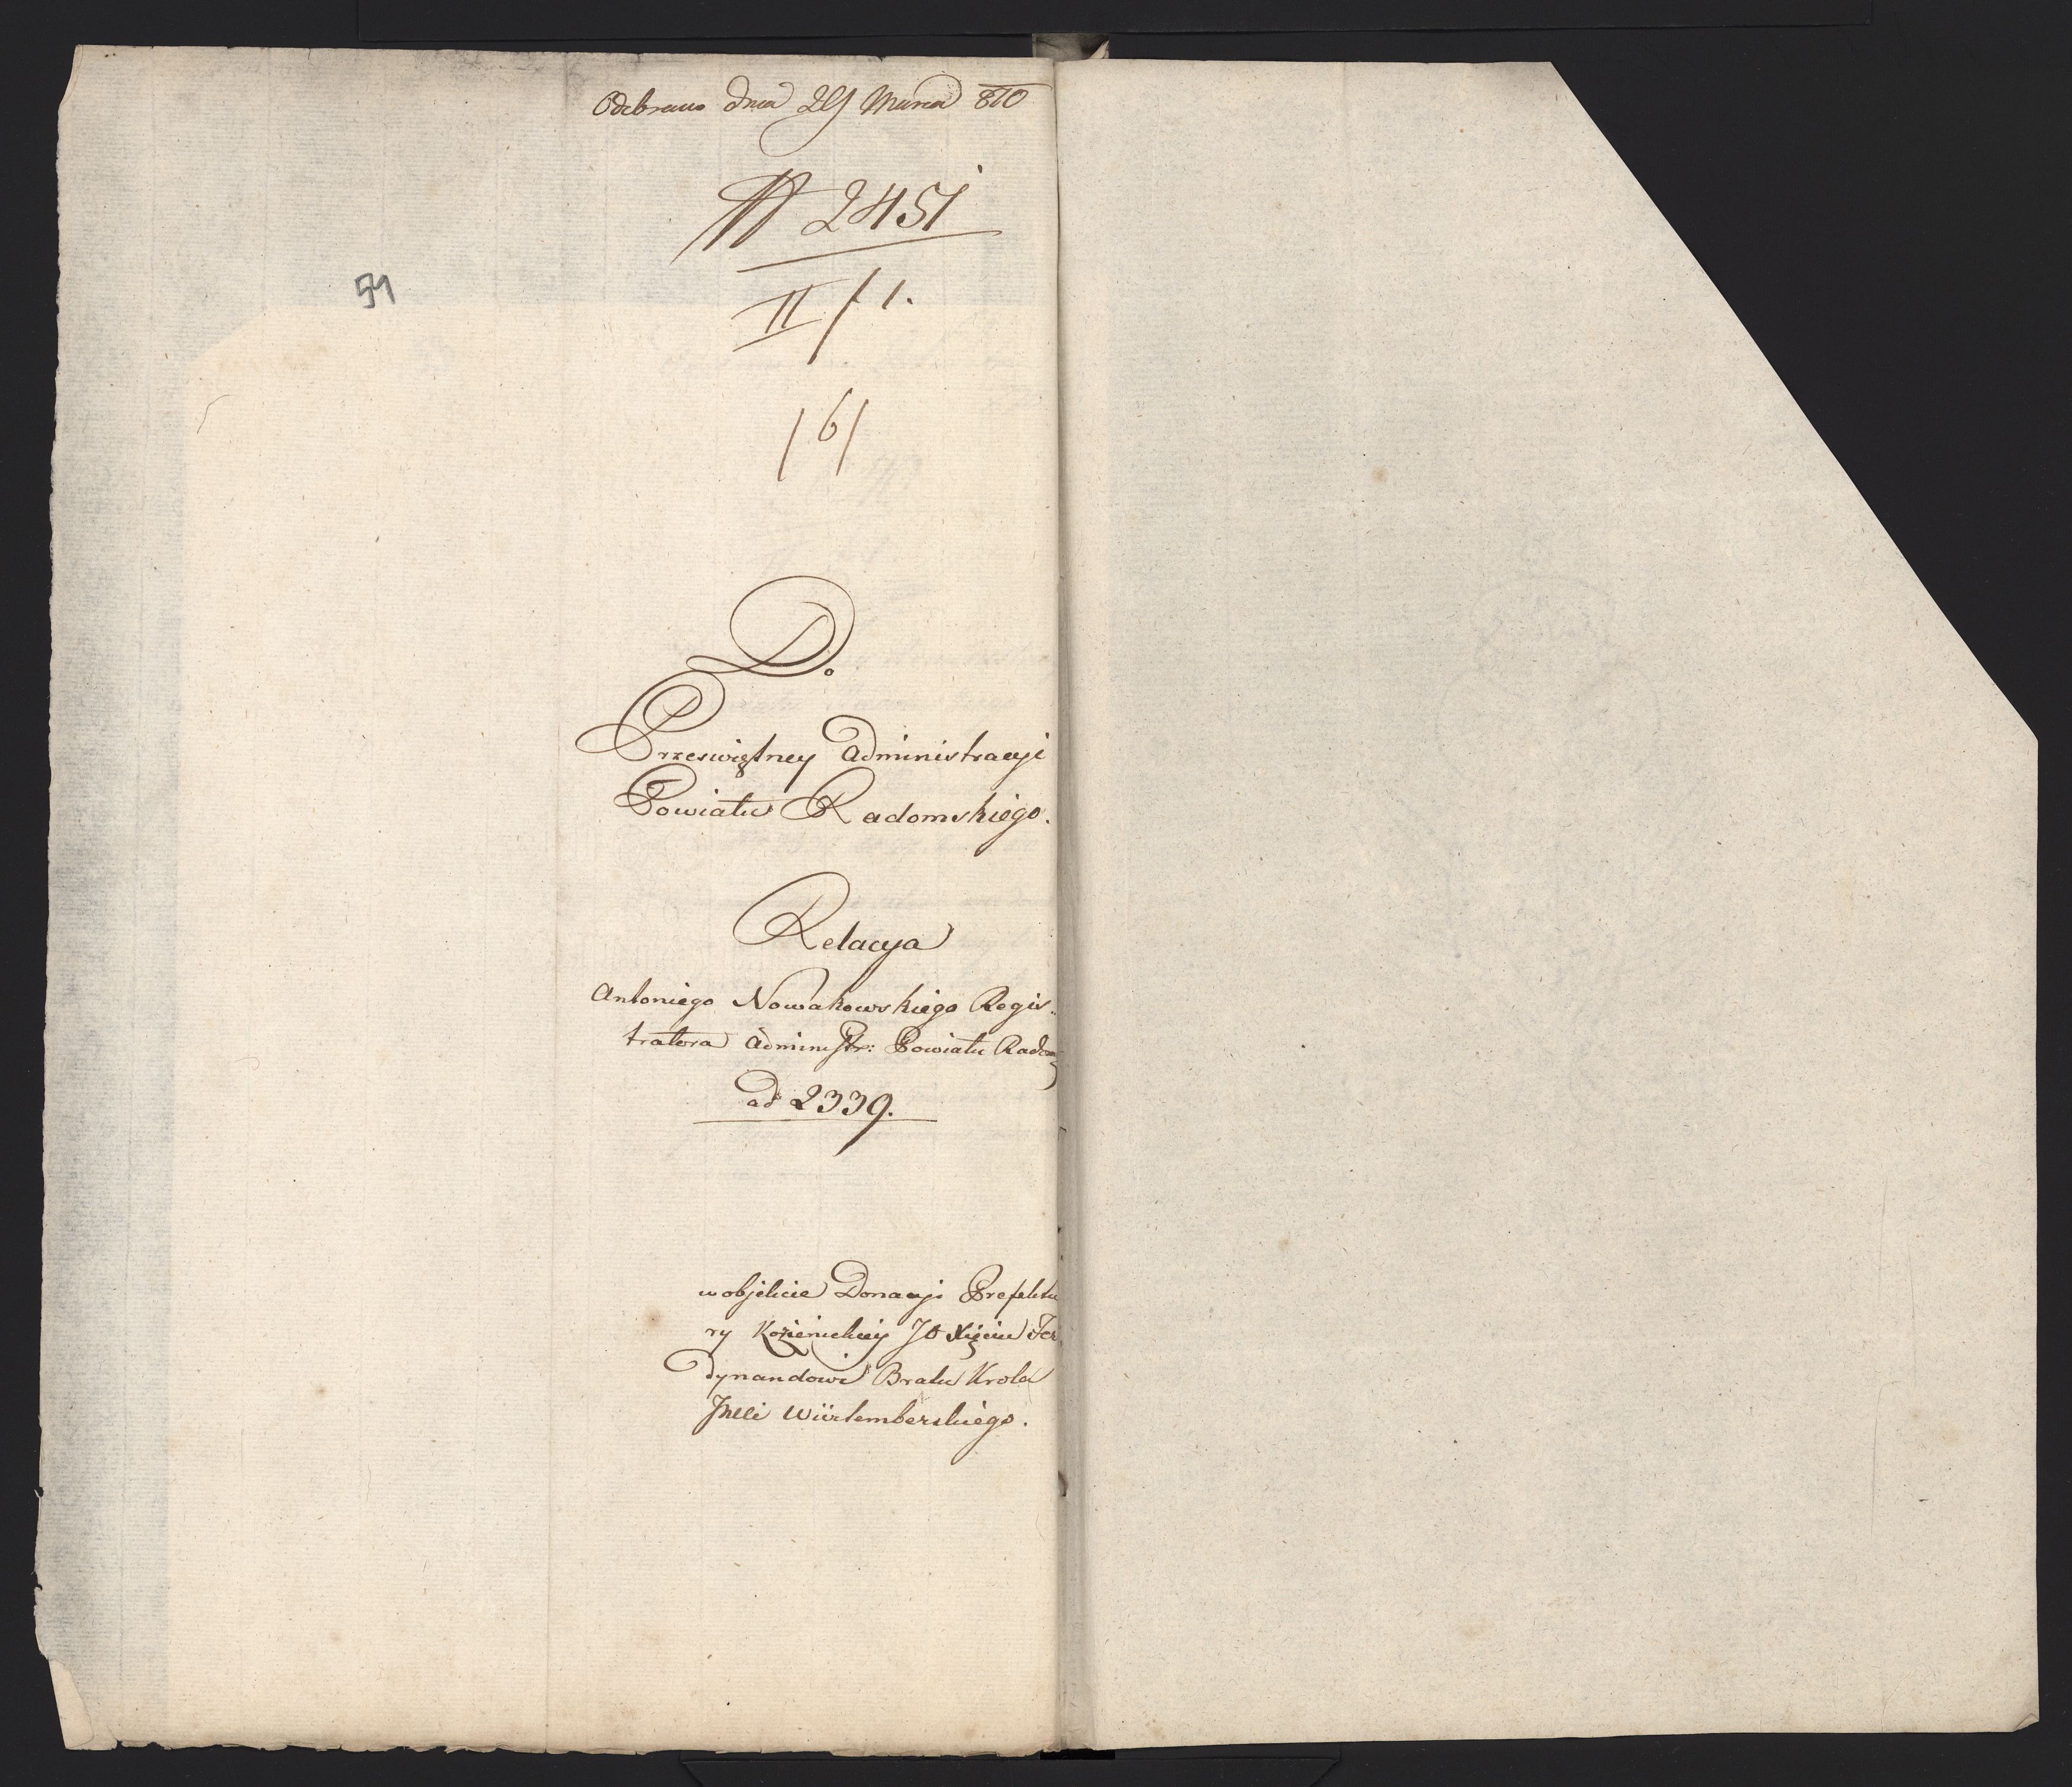 Odebrano dnia 29 Marca 810
№ 2451
II / 1.
/6/
54
Do
Przeświętney Administracyi
Powiatu Radomskiego.
Relacya
Antoniego Nowakowskiego Regis-
tratora Administr: Powiatu Radom
ad 2339.
w objekcie Donacyi Prefektu
ry Kozienickiey JO Xięciu Fer
dynandowi Bratu Krola
Jmci Würtemberskiego.